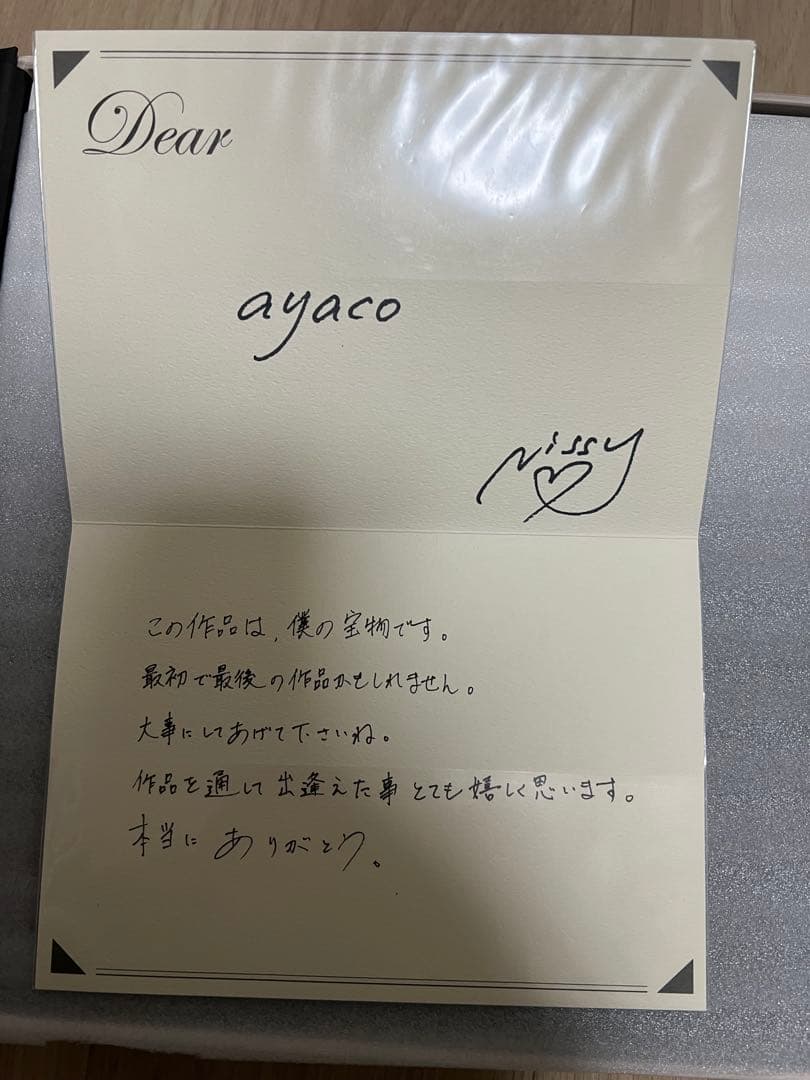 Dear
ayaco
Nissy
この作品は、僕の宝物です。
最初で最後の作品かもしれません。
大事にしてあげて下さいね。
作品を通して出逢えた事とても嬉しく思います。
本当にありがとう。